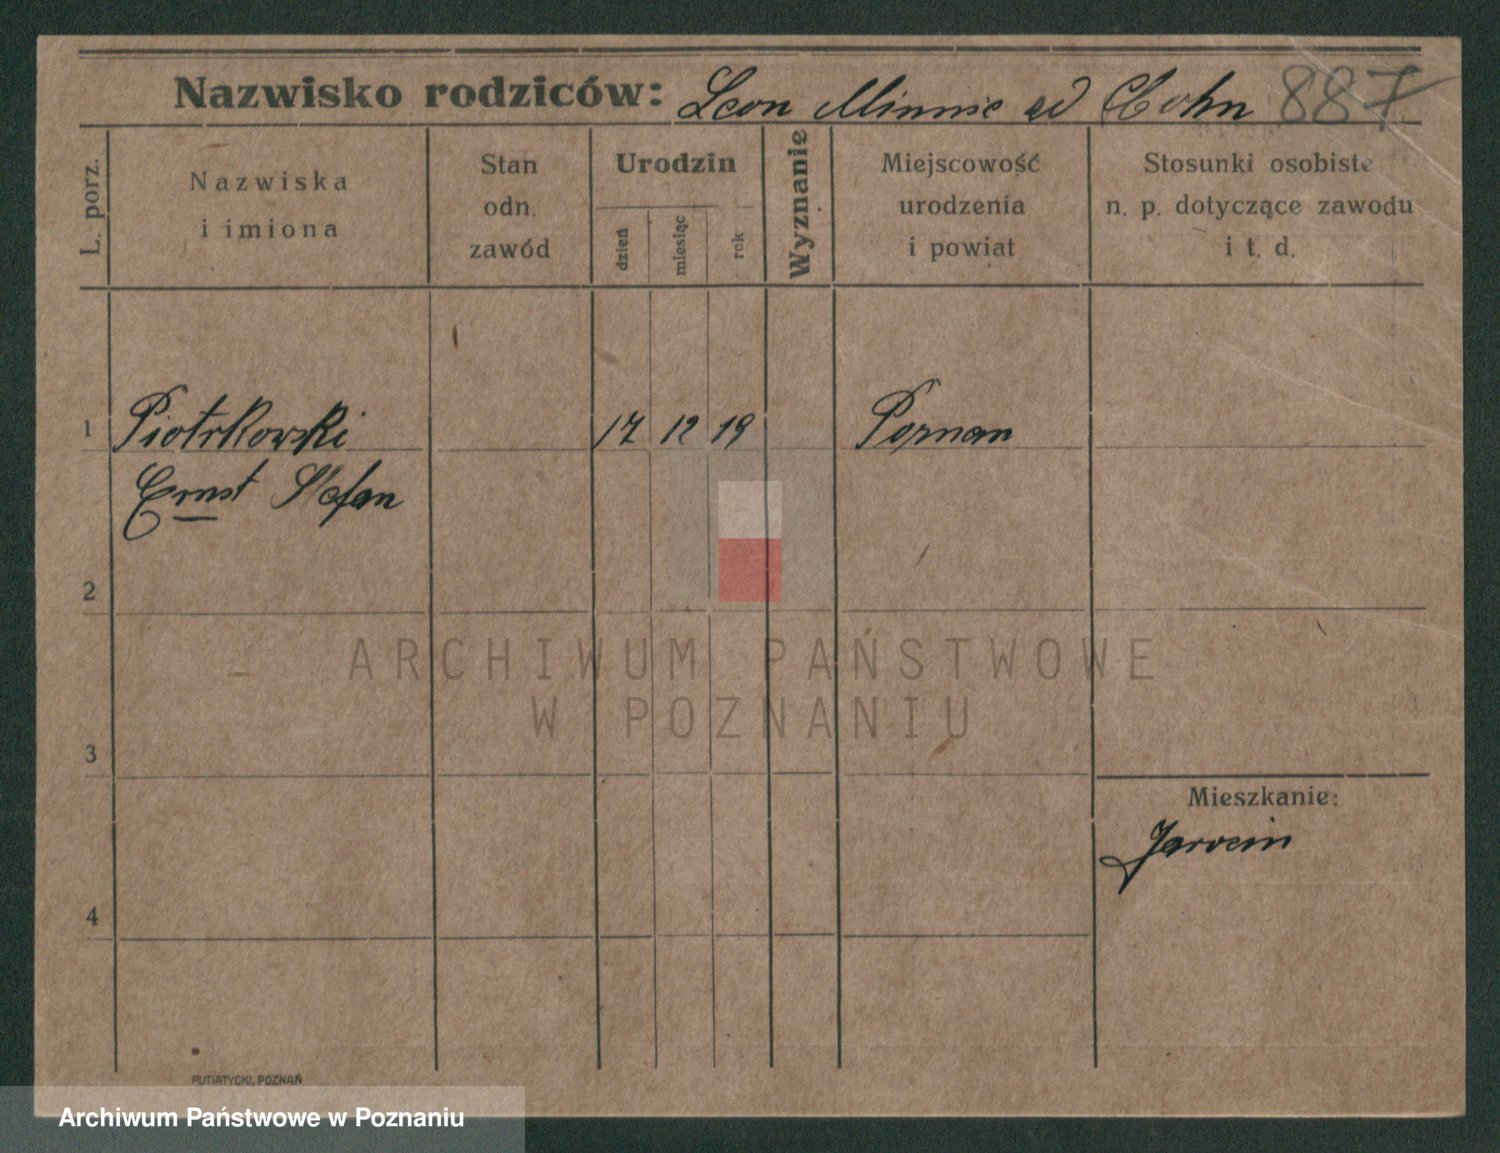 Nazwisko rodziców: Leon Minnie ad Cohn 887
L. porz.
Nazwiska
i imiona
Stan
odn.
zawód
Urodzin
dzień
miesiąc
rok
Wyznanie
Miejscowość
urodzenia
i powiat
Stosunki osobiste
n. p. dotyczące zawodu
i t. d.
1 Piotrkowski 17 12 19 Poznan
Ernst Stefan
2
ARCHIWUM PAŃSTWOWE
W POZNANIU
3
Mieszkanie:
Jarocin
4
PUTIATYCKI, POZNAŃ
Archiwum Państwowe w Poznaniu